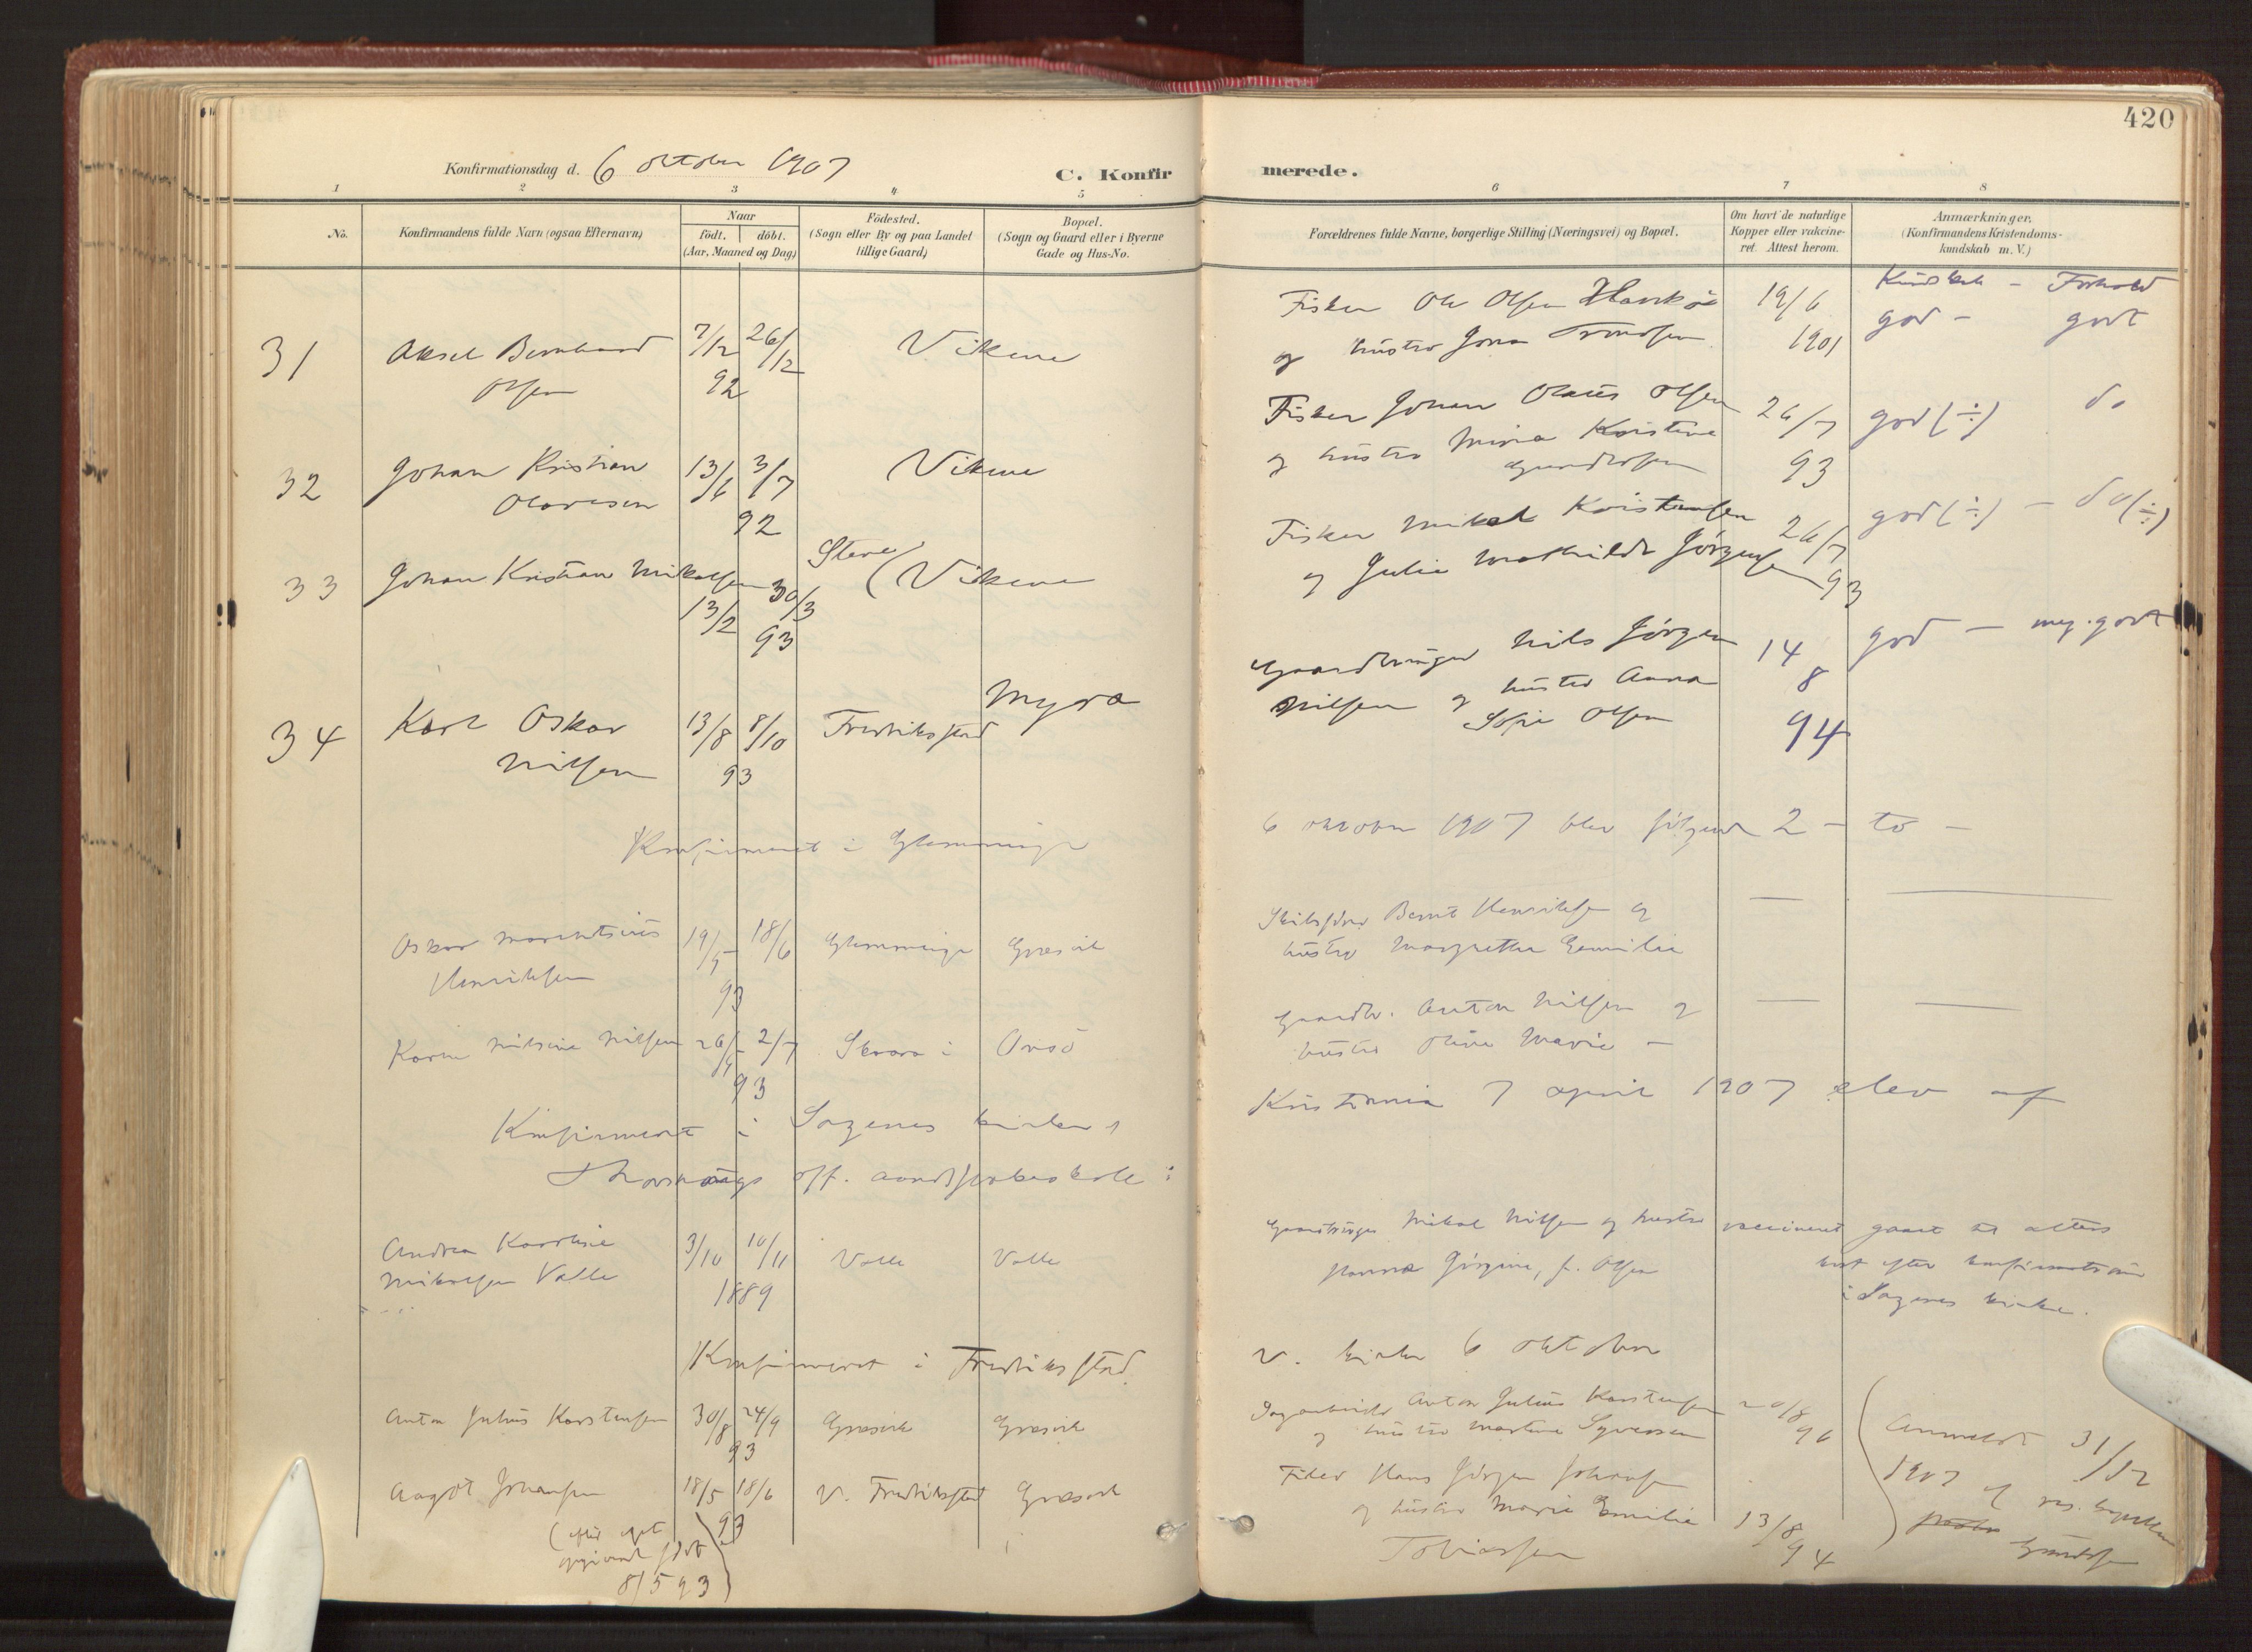 420
Konfirmationsdag d. 6 oktober 1907
C. Konfirmerede.
1 2 3 4 5 6 7 8
No.
Konfirmandens fulde Navn (ogsaa Efternavn)
Naar
født. døbt.
(Aar, Maaned og Dag)
Födested.
(Sogn eller By og paa Landet
tillige Gaard)
Bopæl.
(Sogn og Gaard eller i Byerne
Gade og Hus-No.
Forældrenes fulde Navne, borgerlige Stilling (Næringsvei) og Bopæl.
Om havt de naturlige
Kopper eller vakcine-
ret. Attest herom.
Anmærkninger.
(Konfirmandens Kristendoms-
kundskab m. V.)
Kundskab - Forhold
31 Aksel Bernhard Olsen
7/12 26/12 92
Vikene
Fisker Ole Olsen
og hustru
19/6 1901
god - godt
32 Johan Kristian Olavesen
13/6 3/7 92
Vikene
Fisker Johan Olaus Olsen
og hustru Mina Kristine
26/7 93
god (÷) do
33 Johan Kristian Mikalsen
13/2 30/3 93
Stene (Vikene
Fisker Mikal Kristensen
og Julie Mathilde Jörgensen
26/7 93
god (÷) - do (÷)
34 Karl Oskar Nilsen
13/8 8/10 93
Fredriksstad
Myra
Gaardbruger Nils Jörgen
Nilsen og hustru Anna
Sofie Olsen
14 8 94
god - meg. godt
Konfirmeret i Glemminge 6 oktober 1907 blev følgende 2 - to -
Oskar Marentsius Henriksen
19/5 18/6 93
Glemminge
Græsvik
Skibsfører Bernt Henriksen og
hustru Margrethe Emilie
Karen Nilsine Nilsen
26/5 2/7 93
Skaara i Onsö
Gaardbr. Anton Nilsen og
hustru Oline Marie -
Konfirmeret i Sagenes kirke, Kristiania 7 april 1907 elev af
off. aandsskoleskole:
Andrea Karoline
Mikalsen Valle
3/10 10/11 1889
Valle
Valle
Gaardbruger Mikal Nilsen og hustru
Hanna Jörgine, f. Olsen
vaccineret
gaaet til alters
her efter konfirmationen
i Sagenes kirke.
Konfirmeret i Fredriksstad V. kirke 6 oktober
Anton Julius Karstensen
30/8 24/9 93
Græsvik
Græsvik
Anton Julius Karstensen
og hustru Martine Syversen
20/8 96
Anmeldt 31/12
1907 af res. kapellan
Aagot Johansen
18/5 18/6 93
V. Fredriksstad
Græsvik
Hans Jörgen Johansen
og hustru Marie Emilie
Tobiassen
13/8 94
(efter eget
opgivende født
8/5 93)